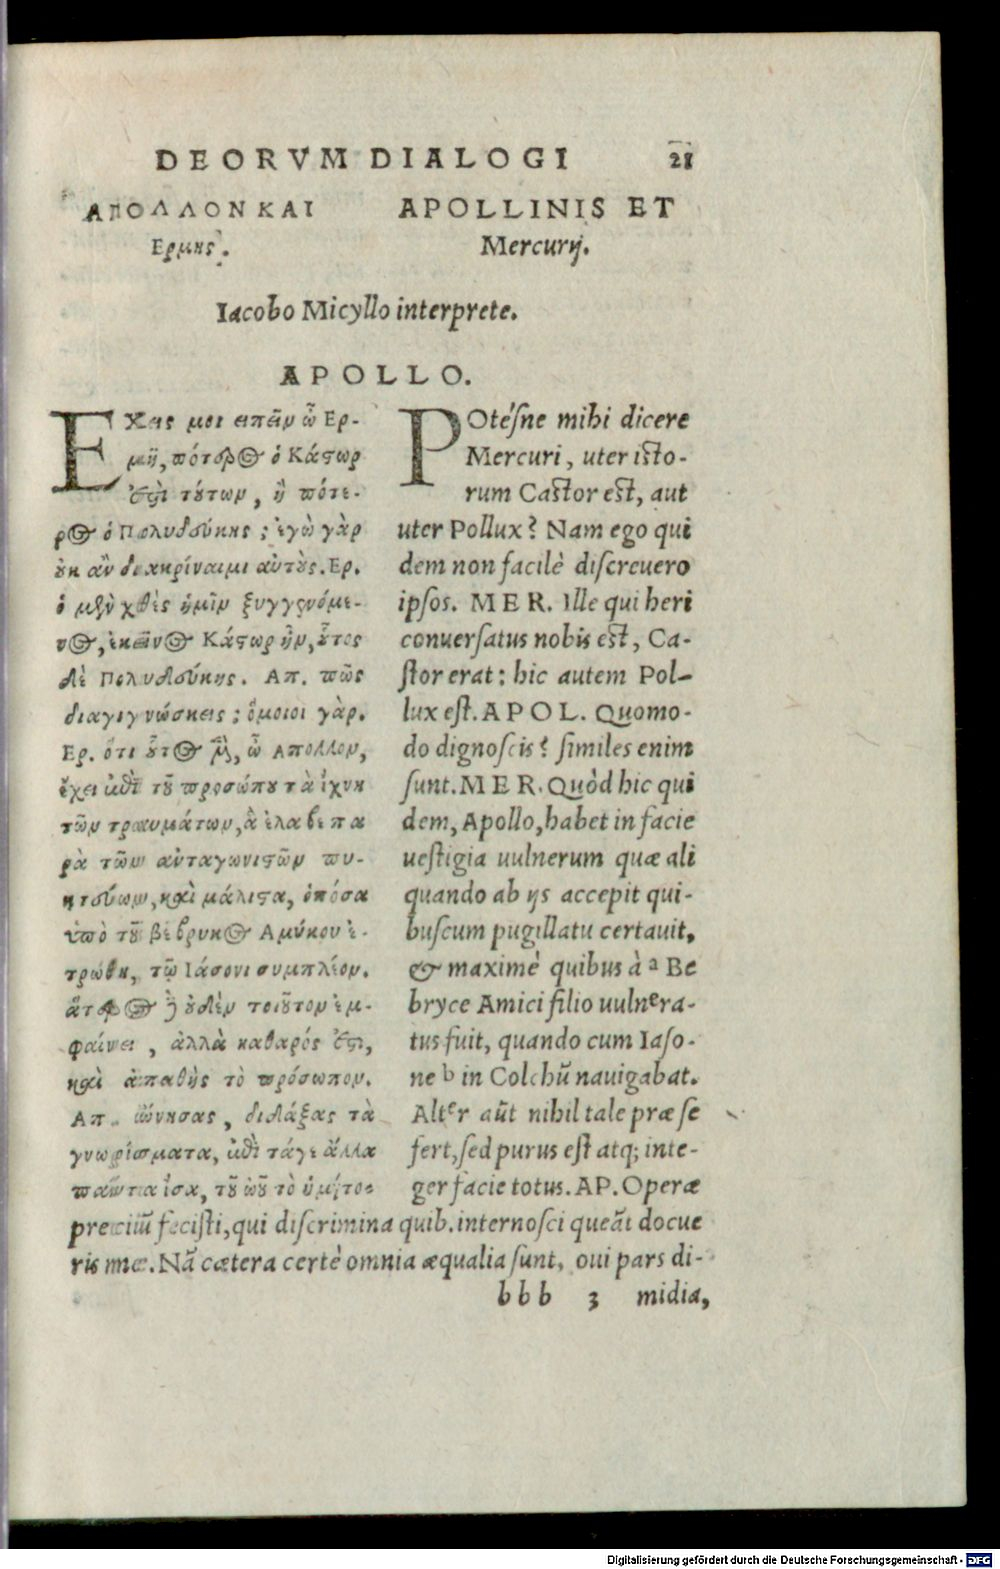 DEORVM DIALOGI 21
ΑΠΟΛΛΟΝ ΚΑΙ
Ερμης.
APOLLINIS ET
Mercurij.
Iacobo Micyllo interprete.
APOLLO.
ΕΧεις μοι ειπεῖν ὦ Ερ-
μῆ, πότερος ὁ Κάστωρ
ἐστὶ τούτων, ἢ πότε-
ρος ὁ Πολυδεύκης; ἐγὼ γὰρ
οὐκ ἂν διακρίναιμι αὐτούς. Ερ.
ὁ μὲν χθὲς ἡμῖν ξυγγενόμε-
νος, ἐκεῖνος Κάστωρ ἦν, οὗτος
δὲ Πολυδεύκης. Απ. πῶς
διαγιγνώσκεις; ὅμοιοι γάρ.
Ερ. ὅτι οὗτος μὲν, ὦ Απολλον,
ἔχει ἐπὶ τοῦ προσώπου τὰ ἴχνη
τῶν τραυμάτων, ἃ ἔλαβε πα
ρὰ τῶν ἀνταγωνιστῶν πυ-
κτεύων, καὶ μάλιστα, ὁπόσα
ὑπὸ τοῦ βέβρυκος Αμύκου ἐ-
τρώθη, τῷ Ιάσονι συμπλέον.
ἅτερος δὲ οὐδὲν τοιοῦτον ἐμ-
φαίνει, ἀλλὰ καθαρός ἐστι,
καὶ ἀπαθὴς τὸ πρόσωπον.
Απ. ὤνησας, διδάξας τὰ
γνωρίσματα, ἐπεὶ τάγε ἄλλα
πάντα ἴσα, τοῦ ὠοῦ τὸ ἡμίτο-
POteśne mihi dicere
Mercuri, uter isto-
rum Castor est, aut
uter Pollux? Nam ego qui
dem non facilè discreuero
ipsos. MER. Ille qui heri
conuersatus nobis est, Ca-
stor erat: hic autem Pol-
lux est. APOL. Quomo-
do dignoscis? similes enim
sunt. MER. Quòd hic qui
dem, Apollo, habet in facie
uestigia uulnerum quæ ali
quando ab ijs accepit qui-
buscum pugillatu certauit,
& maximè quibus à a Be
bryce Amici filio uulnera-
tus fuit, quando cum Iaso-
ne b in Colchũ nauigabat.
Alter aũt nihil tale præ se
fert, sed purus est atq; inte-
ger facie totus. AP. Operæ
precium fecisti, qui discrimina quib. internosci queãt docue
ris me. Nã cætera certè omnia æqualia sunt, oui pars di-
bbb 3 midia,
Digitalisierung gefördert durch die Deutsche Forschungsgemeinschaft - DFG